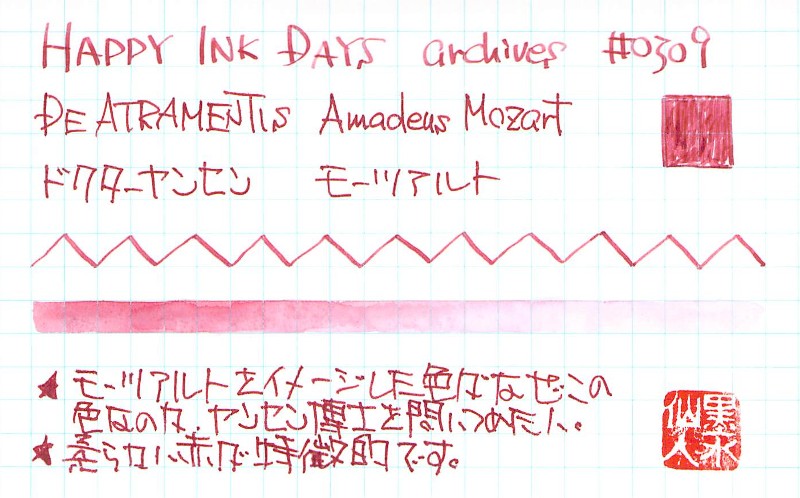 HAPPY INK DAYS archives #0309
DE ATRAMENTIS Amadeus Mozart
ドクターヤンセン モーツアルト
★ モーツアルトをイメージした色がなぜこの
色なのか、ヤンセン博士を問いつめたい。
★ 柔らかい赤が特徴的です。
黒水
仙人